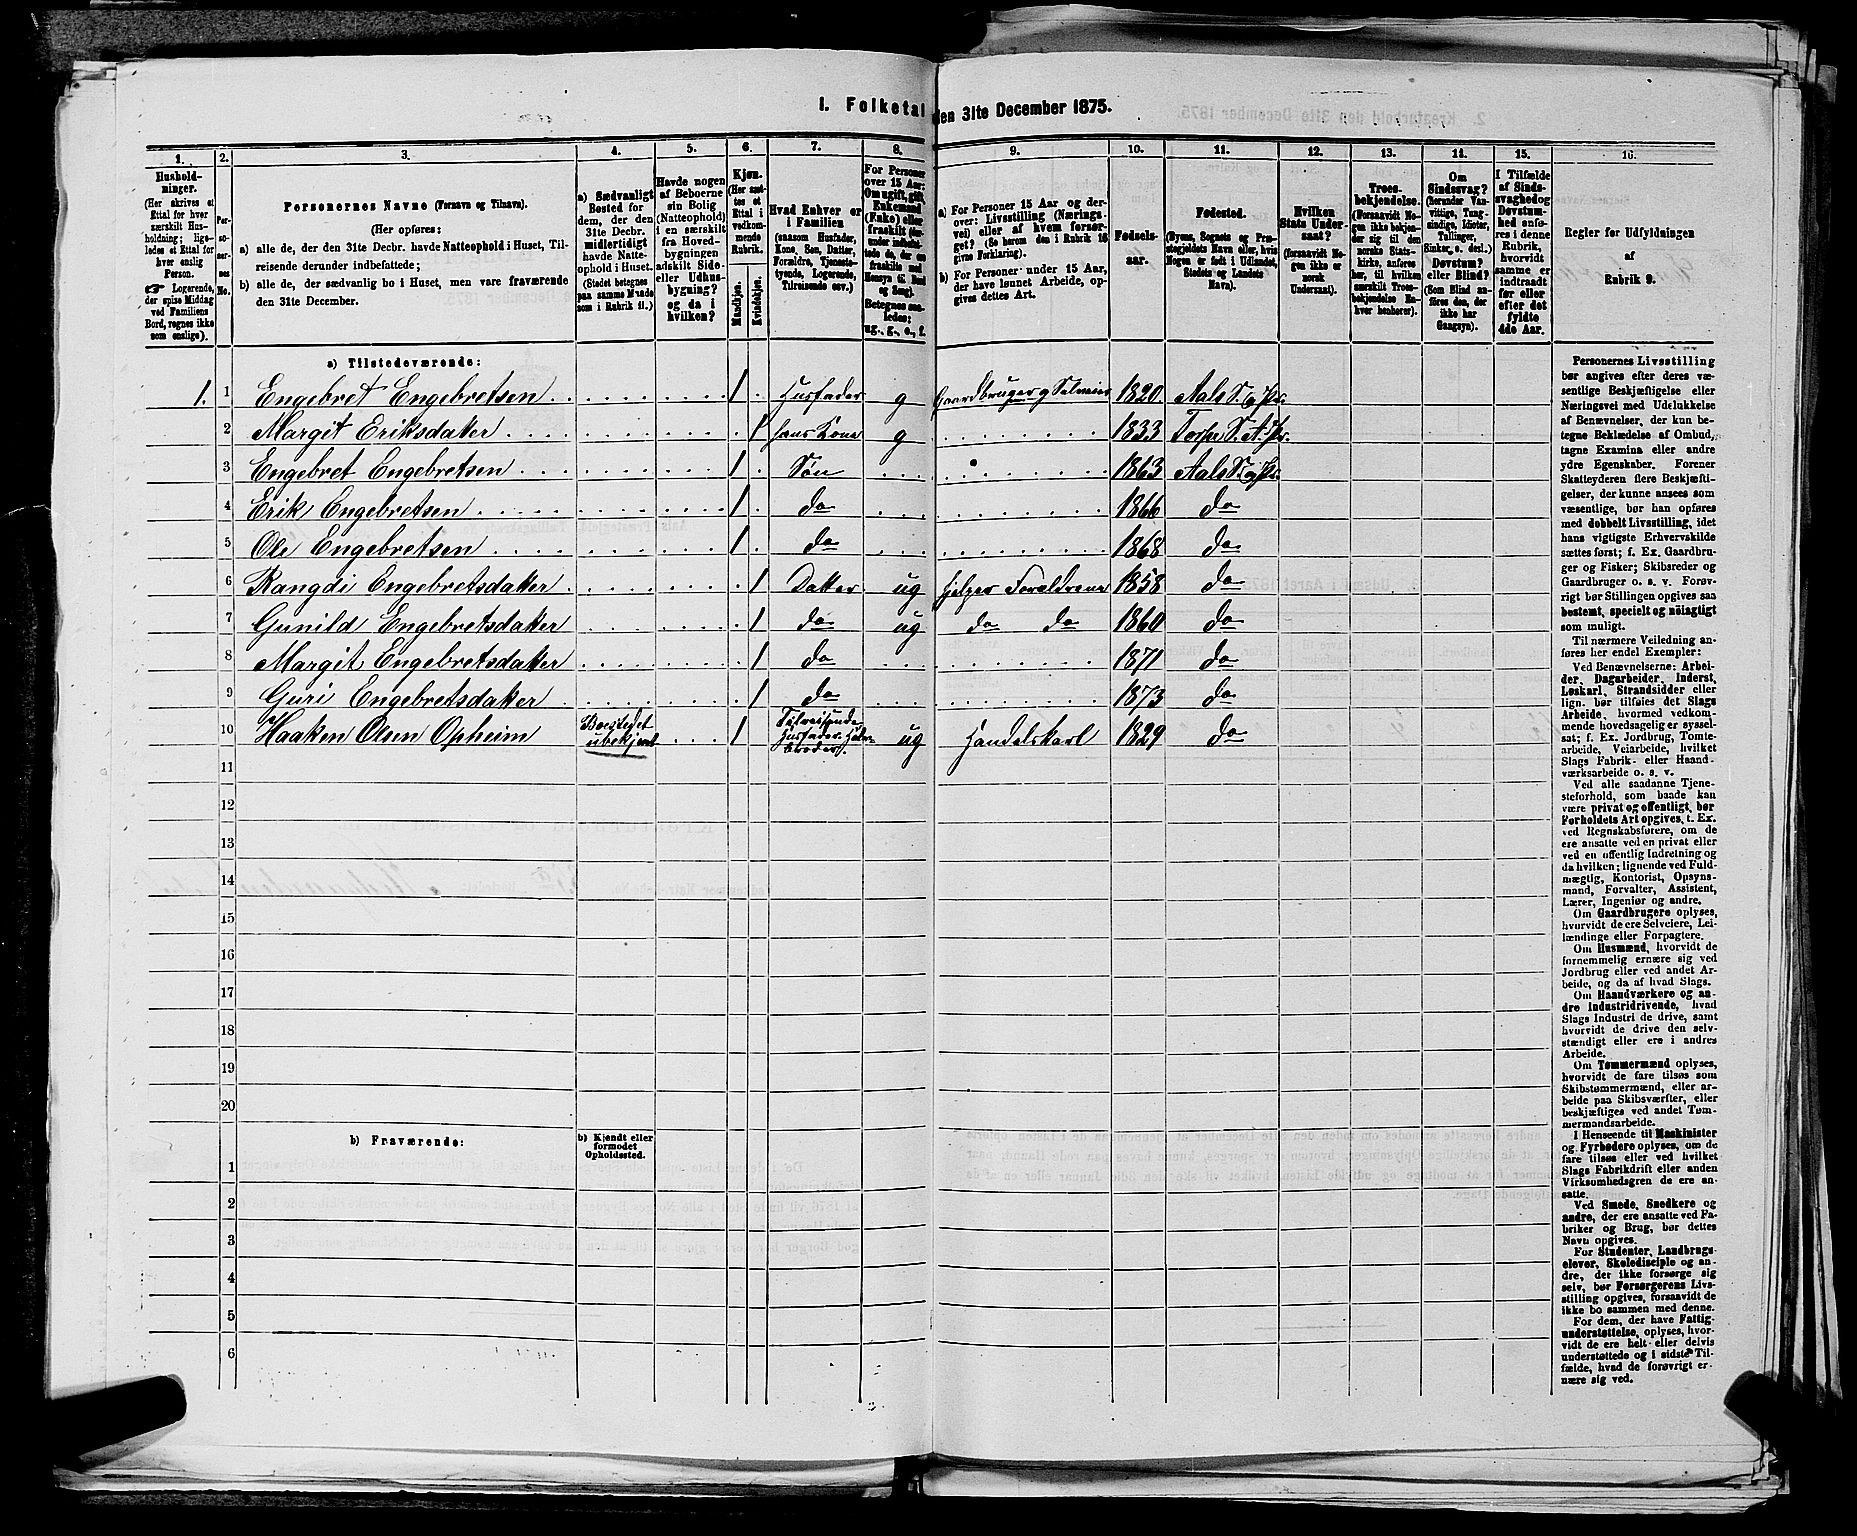 1. Folketal
den 31te December 1875.
1. 2. 3. 4. 5. 6. 7. 8. 9. 10. 11. 12. 13. 14. 15. 16.
Husholdninger.
(Her skrives et
Ettal for hver
særskilt Husholdning; ligeledes et Ettal for
hver enslig
Person.
Logerende,
der spise Middag
ved Familiens
Bord, regnes ikke
som enslige).
Personernes No.
Personernes Navne (Fornavn og Tilnavn).
(Her opføres:
a) alle de, der den 31te Decbr. havde Natteophold i Huset, Tilreisende derunder indbefattede;
b) alle de, der sædvanlig bo i Huset, men vare fraværende
den 31te December.
a) Sædvanligt
Bosted for
dem, der den
31te Decbr.
midlertidigt
havde Natteophold i Huset.
(Stedet betegnes
paa samme Maade
som i Rubrik 11.)
Havde nogen
af Beboerne
sin Bolig
(Natteophold)
i en særskilt
fra Hovedbygningen
adskilt Side-
eller Udhusbygning?
og da i
hvilken?
Kjøn.
(Her sættes et
Ettal i
vedkommende
Rubrik.
Mandkjøn.
Kvindekjøn.
Hvad Enhver er
i Familien
(saasom Husfader,
Kone, Søn, Datter,
Forældre, Tjenestetyende, Logerende,
Tilreisende osv.)
For Personer
over 15 Aar:
Om ugift, gift,
Enkemand
(Enke) eller
fraskilt
Betegnes saaledes:
ug., g., e., f.
a) For Personer 15 Aar og derover: Livsstilling (Næringsvei) eller af hvem forsørget? (Se herom den i Rubrik 16
givne Forklaring).
b) For Personer under 15 Aar,
der have lønnet Arbeide, opgives dettes Art.
Fødselsaar.
Fødested.
(Byens, Sognets og Præstegjeldets Navn eller, hvis
Nogen er født i Udlandet,
Stedets og Landets
Navn).
Hvilken
Stats Undersaat?
(forsaavidt Nogen ikke er
norsk
Undersaat).
Troesbekjendelse.
(Forsaavidt Nogen ikke bekjender sig til den
norske Statskirke, anføres
her, til hvilken
særskilt Troesbekjendelse Enhver henhører).
Om
Sindssvag?
(herunder Vanvittige, Tungsindige, Idioter,
Tullinger,
Sinker, o. desl.)
Døvstum?
eller Blind?
(Som Blind anføres den, der
ikke har
Gangsyn).
I Tilfælde
af Sindssvaghed og
Døvstumhed anføres i denne
Rubrik,
hvorvidt
samme er
indtraadt
før eller
efter det
fyldte
4de Aar.
Regler for Udfyldningen
af
Rubrik 9.
a) Tilstedeværende:
1. 1 Engebret Engebretsen 1 Husfader g Gaardbruger og Selveier 1820 Aals S. og Pr.
2 Margit Eriksdatter 1 hans Kone g 1833 Torpe S. A. Pr.
3 Engebret Engebretsen 1 Søn 1863 Aals S. og Pr.
4 Erik Engebretsen 1 do 1866 do
5 Ole Engebretsen 1 do 1868 do
6 Rangdi Engebretsdatter 1 Datter ug hjelper Forældrene 1858 do
7 Gunild Engebretsdatter 1 do ug do do 1860 do
8 Margit Engebretsdatter 1 do 1871 do
9 Guri Engebretsdatter 1 do 1873 do
10 Haaken Olsen Opheim Bostedet
ubekjent 1 Tilreisende
Husfader Halv
broder ug Handelskarl 1829 do
11
12
13
14
15
16
17
18
19
20
b) Fraværende:
b) Kjendt eller
formodet
Opholdssted.
1
2
3
4
5
6
Personernes Livsstilling
bør angives efter deres væsentlige Beskjæftigelse eller
Næringsvei med Udelukkelse
af Benævnelser, der kun betegne Beklædelse af Ombud,
tagne Examina eller andre
ydre Egenskaber. Forener
Skatteyderen flere Beskjæftigelser, der kunne ansees som
væsentlige, bør han opføres
med dobbelt Livsstilling, idet
hans vigtigste Erhvervskilde
sættes først; f. Ex. Gaardbruger og Fisker; Skibsreder og
Gaardbruger o. s. v. Forøvrigt bør Stillingen opgives saa
bestemt, specielt og nöiagtigt
som muligt.
Til nærmere Veiledning anføres her endel Exempler:
Ved Benævnelserne: Arbeider, Dagarbeider, Inderst,
Løskarl, Strandsidder eller
lign. bør tilføies det Slags
Arbeide, hvormed vedkommende hovedsagelig er sysselsat; f. Ex. Jordbrug, Tomtearbeide, Veiarbeide, hvilket
Slags Fabrik- eller Haandværksarbeide o. s. v.
Ved alle saadanne Tjenesteforhold, som baade kan
være privat og offentligt, bør
Forholdets Art opgives, t. Ex.
ved Regnskabsførere, om de
ere ansatte ved en privat eller
ved en offentlig Indretning og
da hvilken; lignende ved Fuldmægtig, Kontorist, Opsynsmand, Forvalter, Assistent,
Lærer, Ingeniør og andre.
Om Gaardbrugere oplyses,
hvorvidt de ere Selveiere, Leilændinge eller Forpagtere.
Om Husmænd, hvorvidt de
fornemmelig ernære sig ved
Jordbrug eller ved andet Arbeide, og da af hvad Slags.
Om Haandværkere og andre Industridrivende, hvad
Slags Industri de drive, samt
hvorvidt de drive den selvstændigt eller ere i andres
Arbeide.
Om Tømmermænd oplyses,
hvorvidt de fare tilsøs som
Skibstømmermænd, eller arbeide paa Skibsværfter, eller
beskjæftiges ved andet Tømmermandsarbeide.
I Henseende til Maskinister
og Fyrbødere oplyses, om de
fare tilsøs eller ved hvilket
Slags Fabrikdrift eller anden
Virksomhedsgren de ere ansatte.
Ved Smede, Snedkere og
andre, der ere ansatte ved Fabriker og Brug, bør dettes
Navn opgives.
For Studenter, Landbrugselever, Skoledisciple og andre, der ikke forsørge sig
selv, bør Forsørgerens Livsstilling opgives, forsaavidt de
ikke bo sammen med denne.
For dem, der have Fattigunderstøttelse, oplyses, hvorvidt de ere helt eller delvis
understøttede og i sidste Tilfælde, hvad de forøvrigt ernære sig ved.